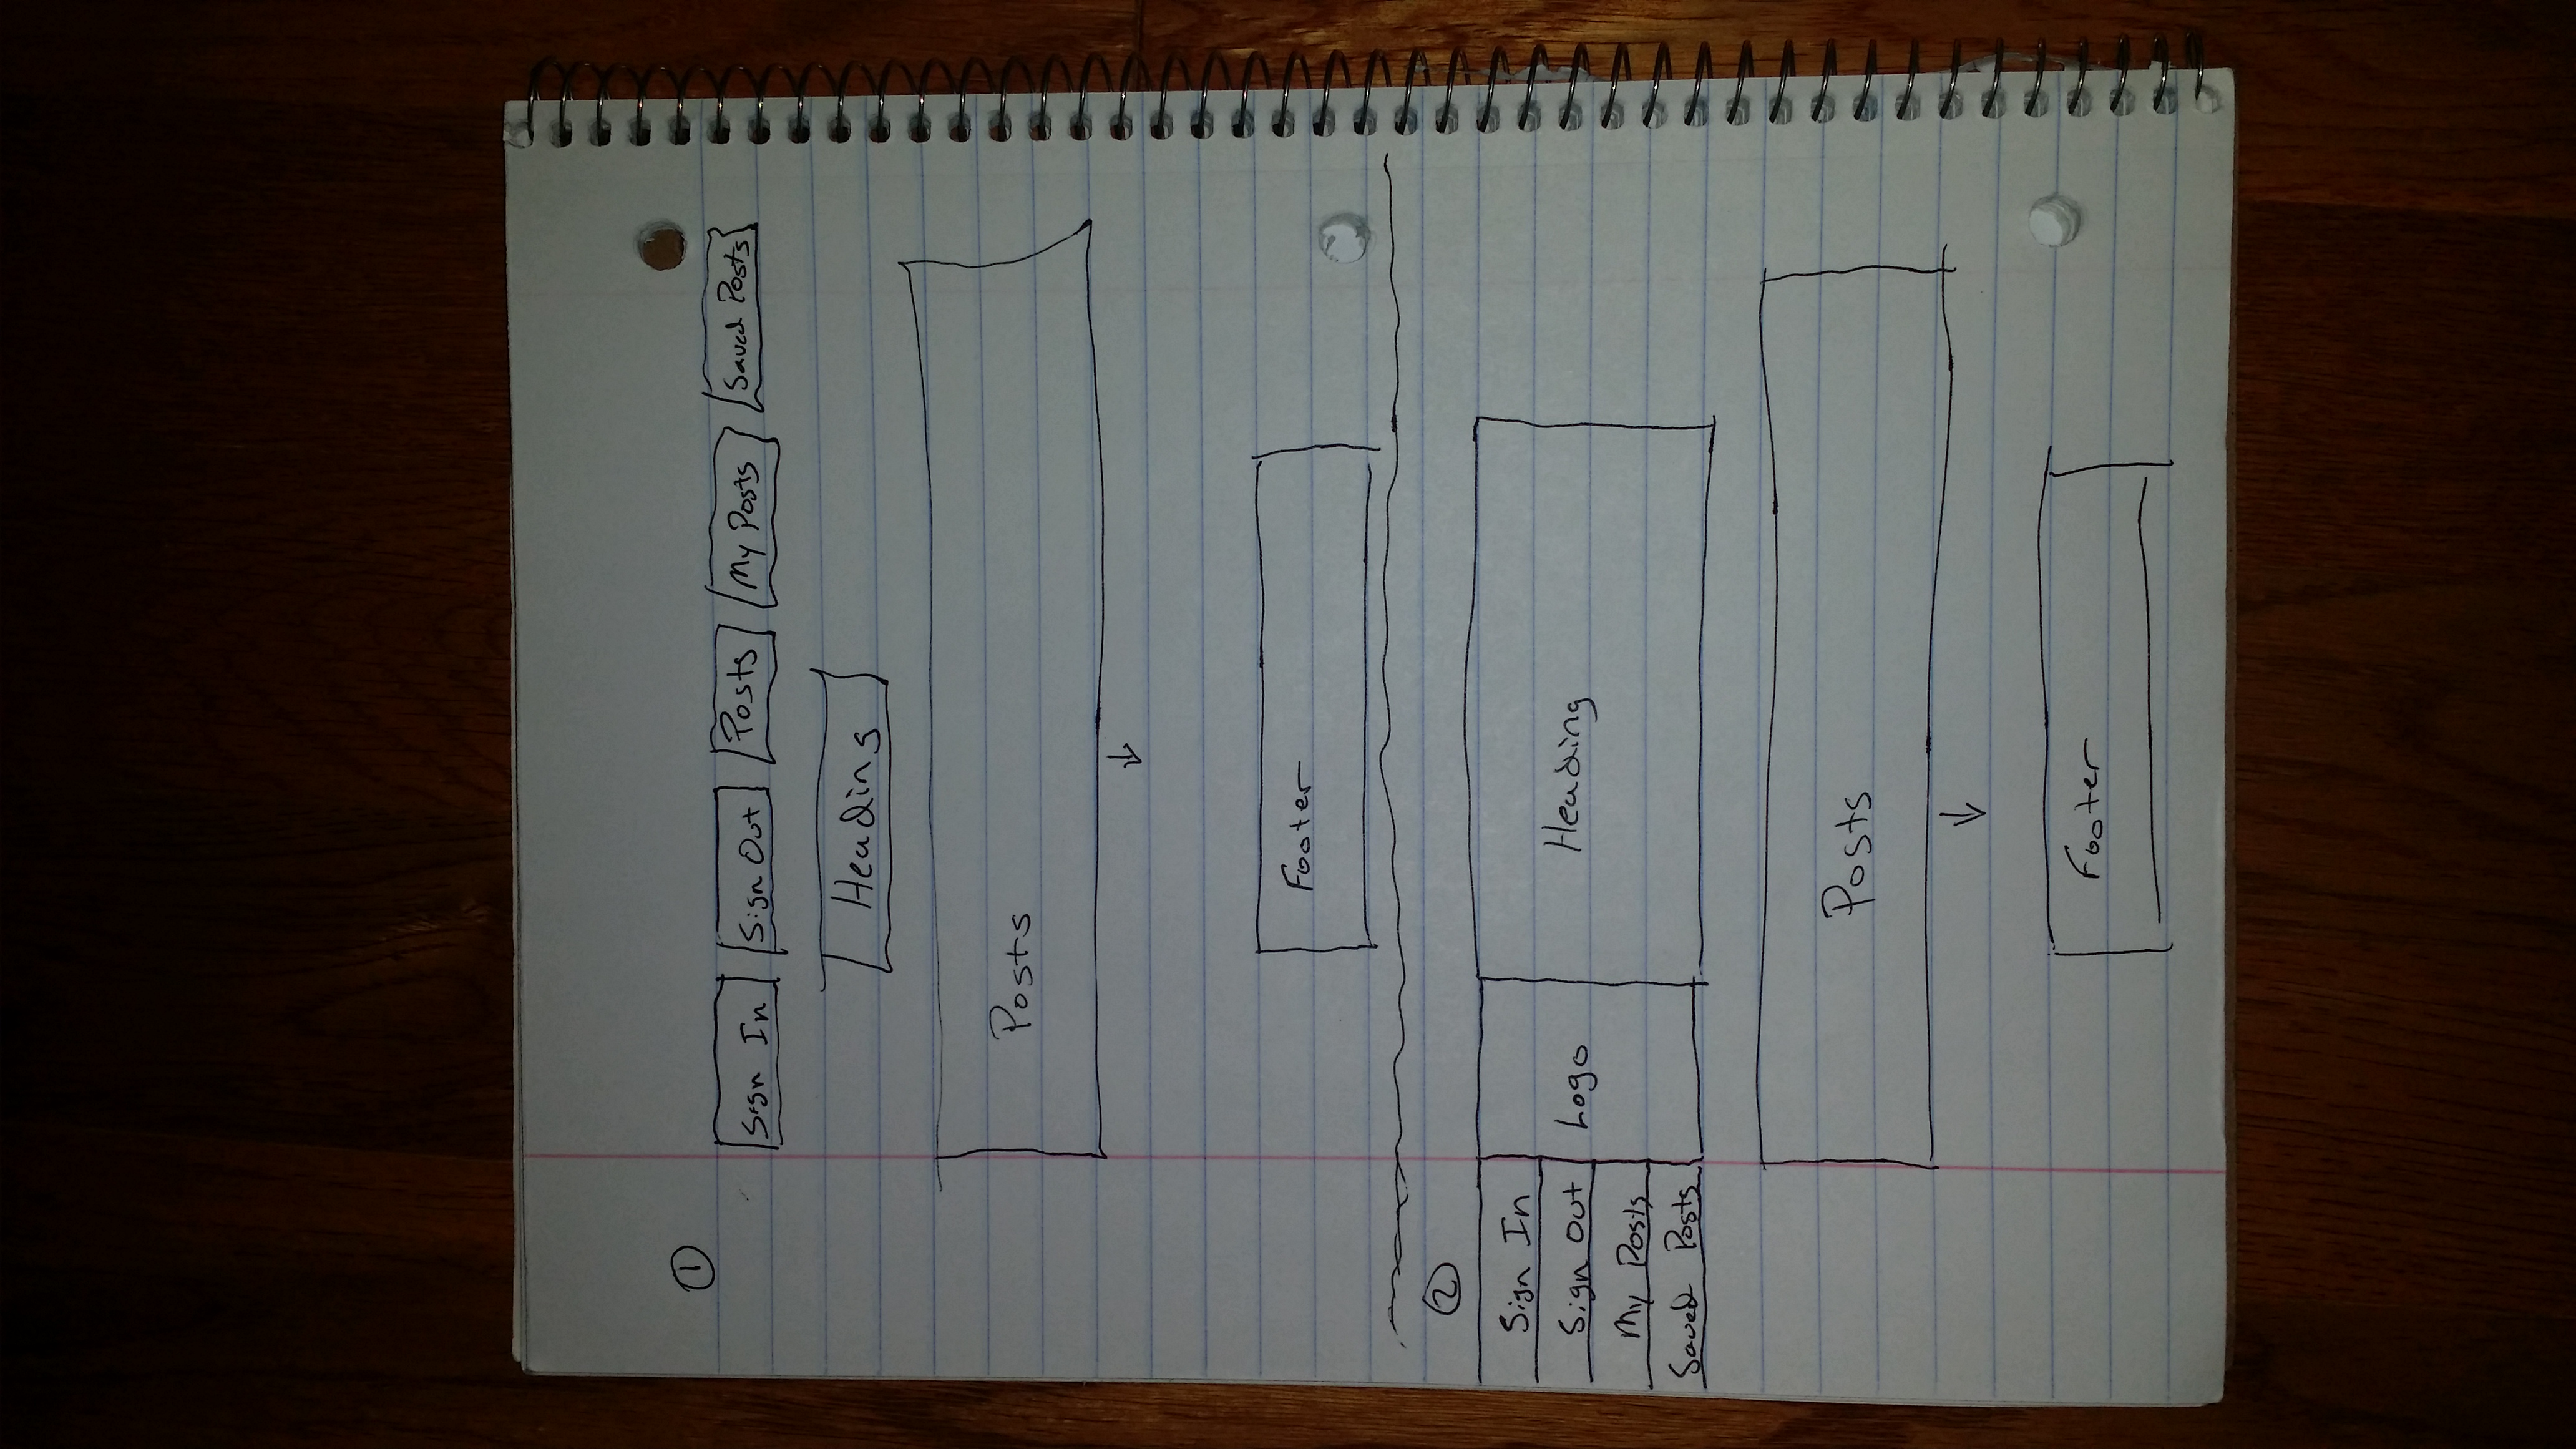 1
Sign In Sign Out Posts My Posts Saved Posts
Heading
Posts
Footer
2
Sign In
Sign Out
My Posts
Saved Posts
Logo
Heading
Posts
Footer